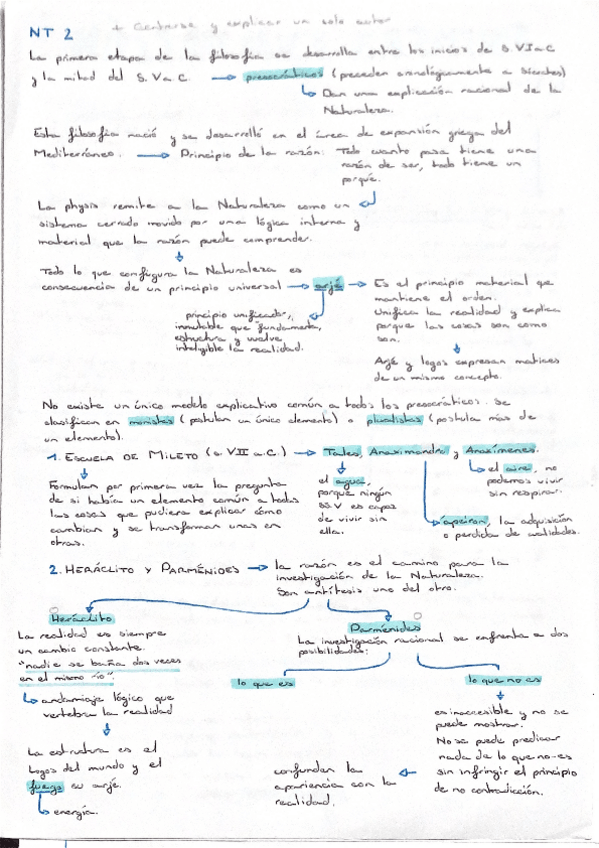 NT 2 + Centrarse y explicar un solo autor
La primera etapa de la filosofía se desarrolla entre los inicios de S. VI a.C
y la mitad del S. V a.C. → presocráticos (preceden cronológicamente a Sócrates)
Dan una explicación racional de la
Naturaleza.
Esta filosofía nació y se desarrolló en el área de expansión griega del
Mediterráneo. → Principio de la razón: Todo cuanto pasa tiene una
razón de ser, todo tiene un
porqué.
La physis remite a la Naturaleza como un
sistema cerrado movido por una lógica interna y
material que la razón puede comprender.
Todo lo que configura la Naturaleza es
consecuencia de un principio universal → arjé → Es el principio material que
mantiene el orden.
Unifica la realidad y explica
porque las cosas son como
son.
Arjé y logos expresan matices
de un mismo concepto.
principio unificador,
inmutable que fundamenta,
estructura y vuelve
inteligible la realidad.
No existe un único modelo explicativo común a todos los presocráticos. Se
clasifican en monistas (postulan un único elemento) o pluralistas (postula más de
un elemento).
1. ESCUELA DE MILETO (s. VII a.C.) → Tales, Anaximandro y Anaxímenes.
Formulan por primera vez la pregunta
de si había un elemento común a todas
las cosas que pudiera explicar cómo
cambian y se transforman unas en
otras.
el agua,
porque ningún
SS.VV es capaz
de vivir sin
ella.
el aire, no
podemos vivir
sin respirar.
apeiron, la adquisición
o perdida de cualidades.
2. HERÁCLITO Y PARMÉNIDES → la razón es el camino para la
investigación de la Naturaleza.
Son antítesis uno del otro.
Heráclito
La realidad es siempre
un cambio constante.
"nadie se baña dos veces
en el mismo río".
andamiaje lógico que
vertebra la realidad
La estructura es el
Logos del mundo y el
fuego su arjé.
energía.
Parménides
La investigación racional se enfrenta a dos
posibilidades:
lo que es
lo que no es
es inaccesible y no se
puede mostrar.
No se puede predicar
nada de lo que no-es
sin infringir el principio
de no contradicción.
confunden la
apariencia con la
realidad.